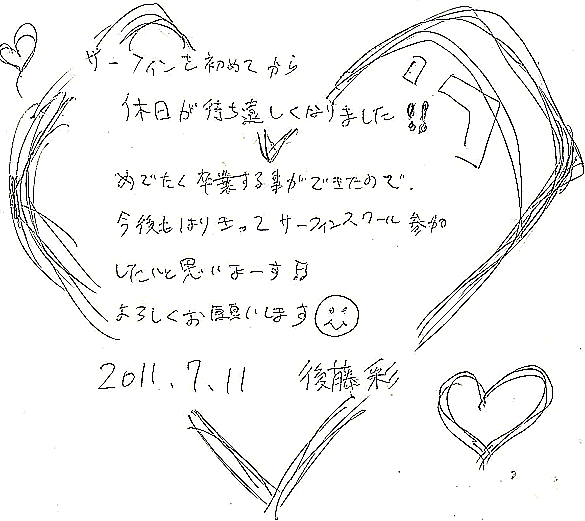 サーフィンを初めてから
休日が待ち遠しくなりました!!
めでたく卒業する事ができたので、
今後もはりきってサーフィンスクール参加
したいと思いまーす
よろしくお願いします
2011.7.11 後藤彩